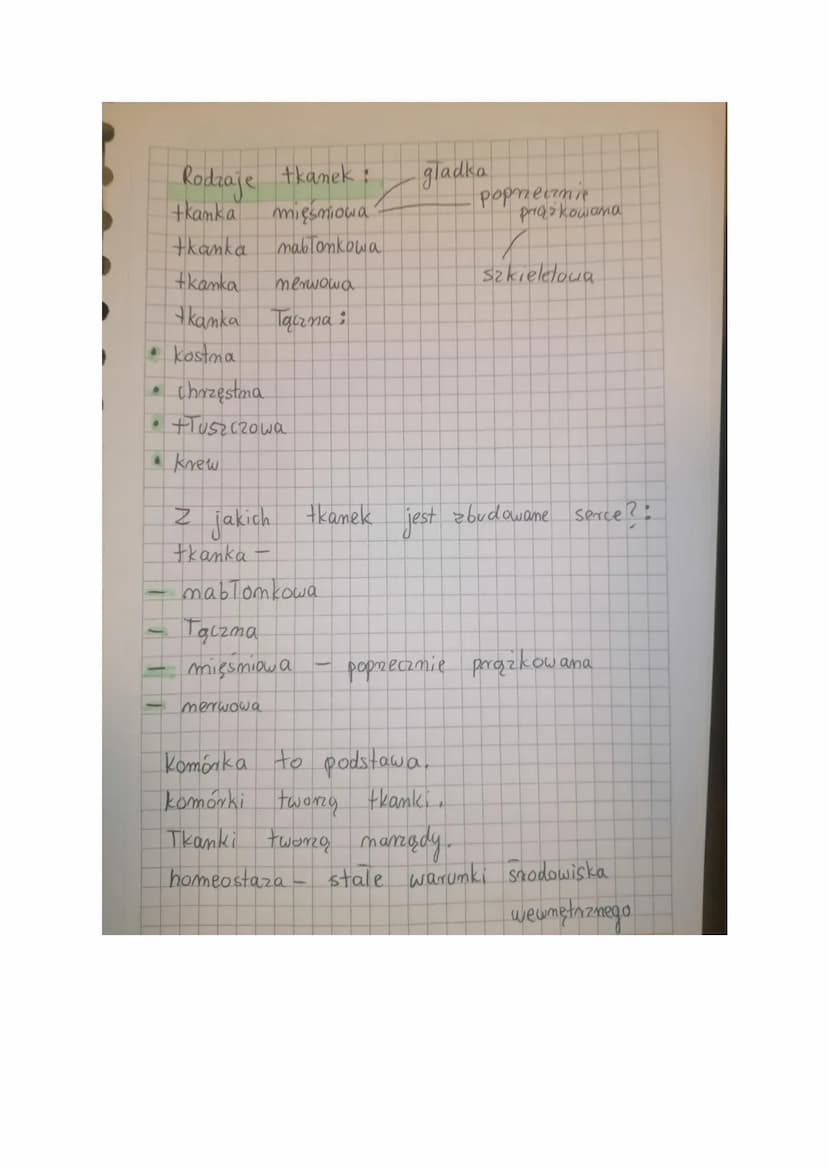 Rodzaje tkanek: gładka
tkanka mięśniowa poprzecznie
prążkowana
tkanka nabłonkowa
szkieletowa
tkanka nerwowa
tkanka łączna:
• kostna
• chrzęstna
• tłuszczowa
• krew
Z jakich tkanek jest zbudowane serce?:
tkanka -
- nabłonkowa
- łączna
- mięśniowa - poprzecznie prążkowana
- nerwowa
Komórka to podstawa.
komórki tworzą tkanki.
Tkanki tworzą narządy.
homeostaza - stałe warunki środowiska
wewnętrznego